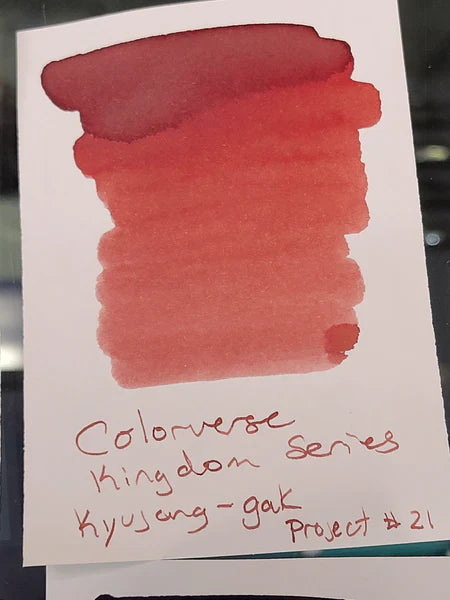 Colorverse
Kingdom Series
Kyujang-gak
Project # 21